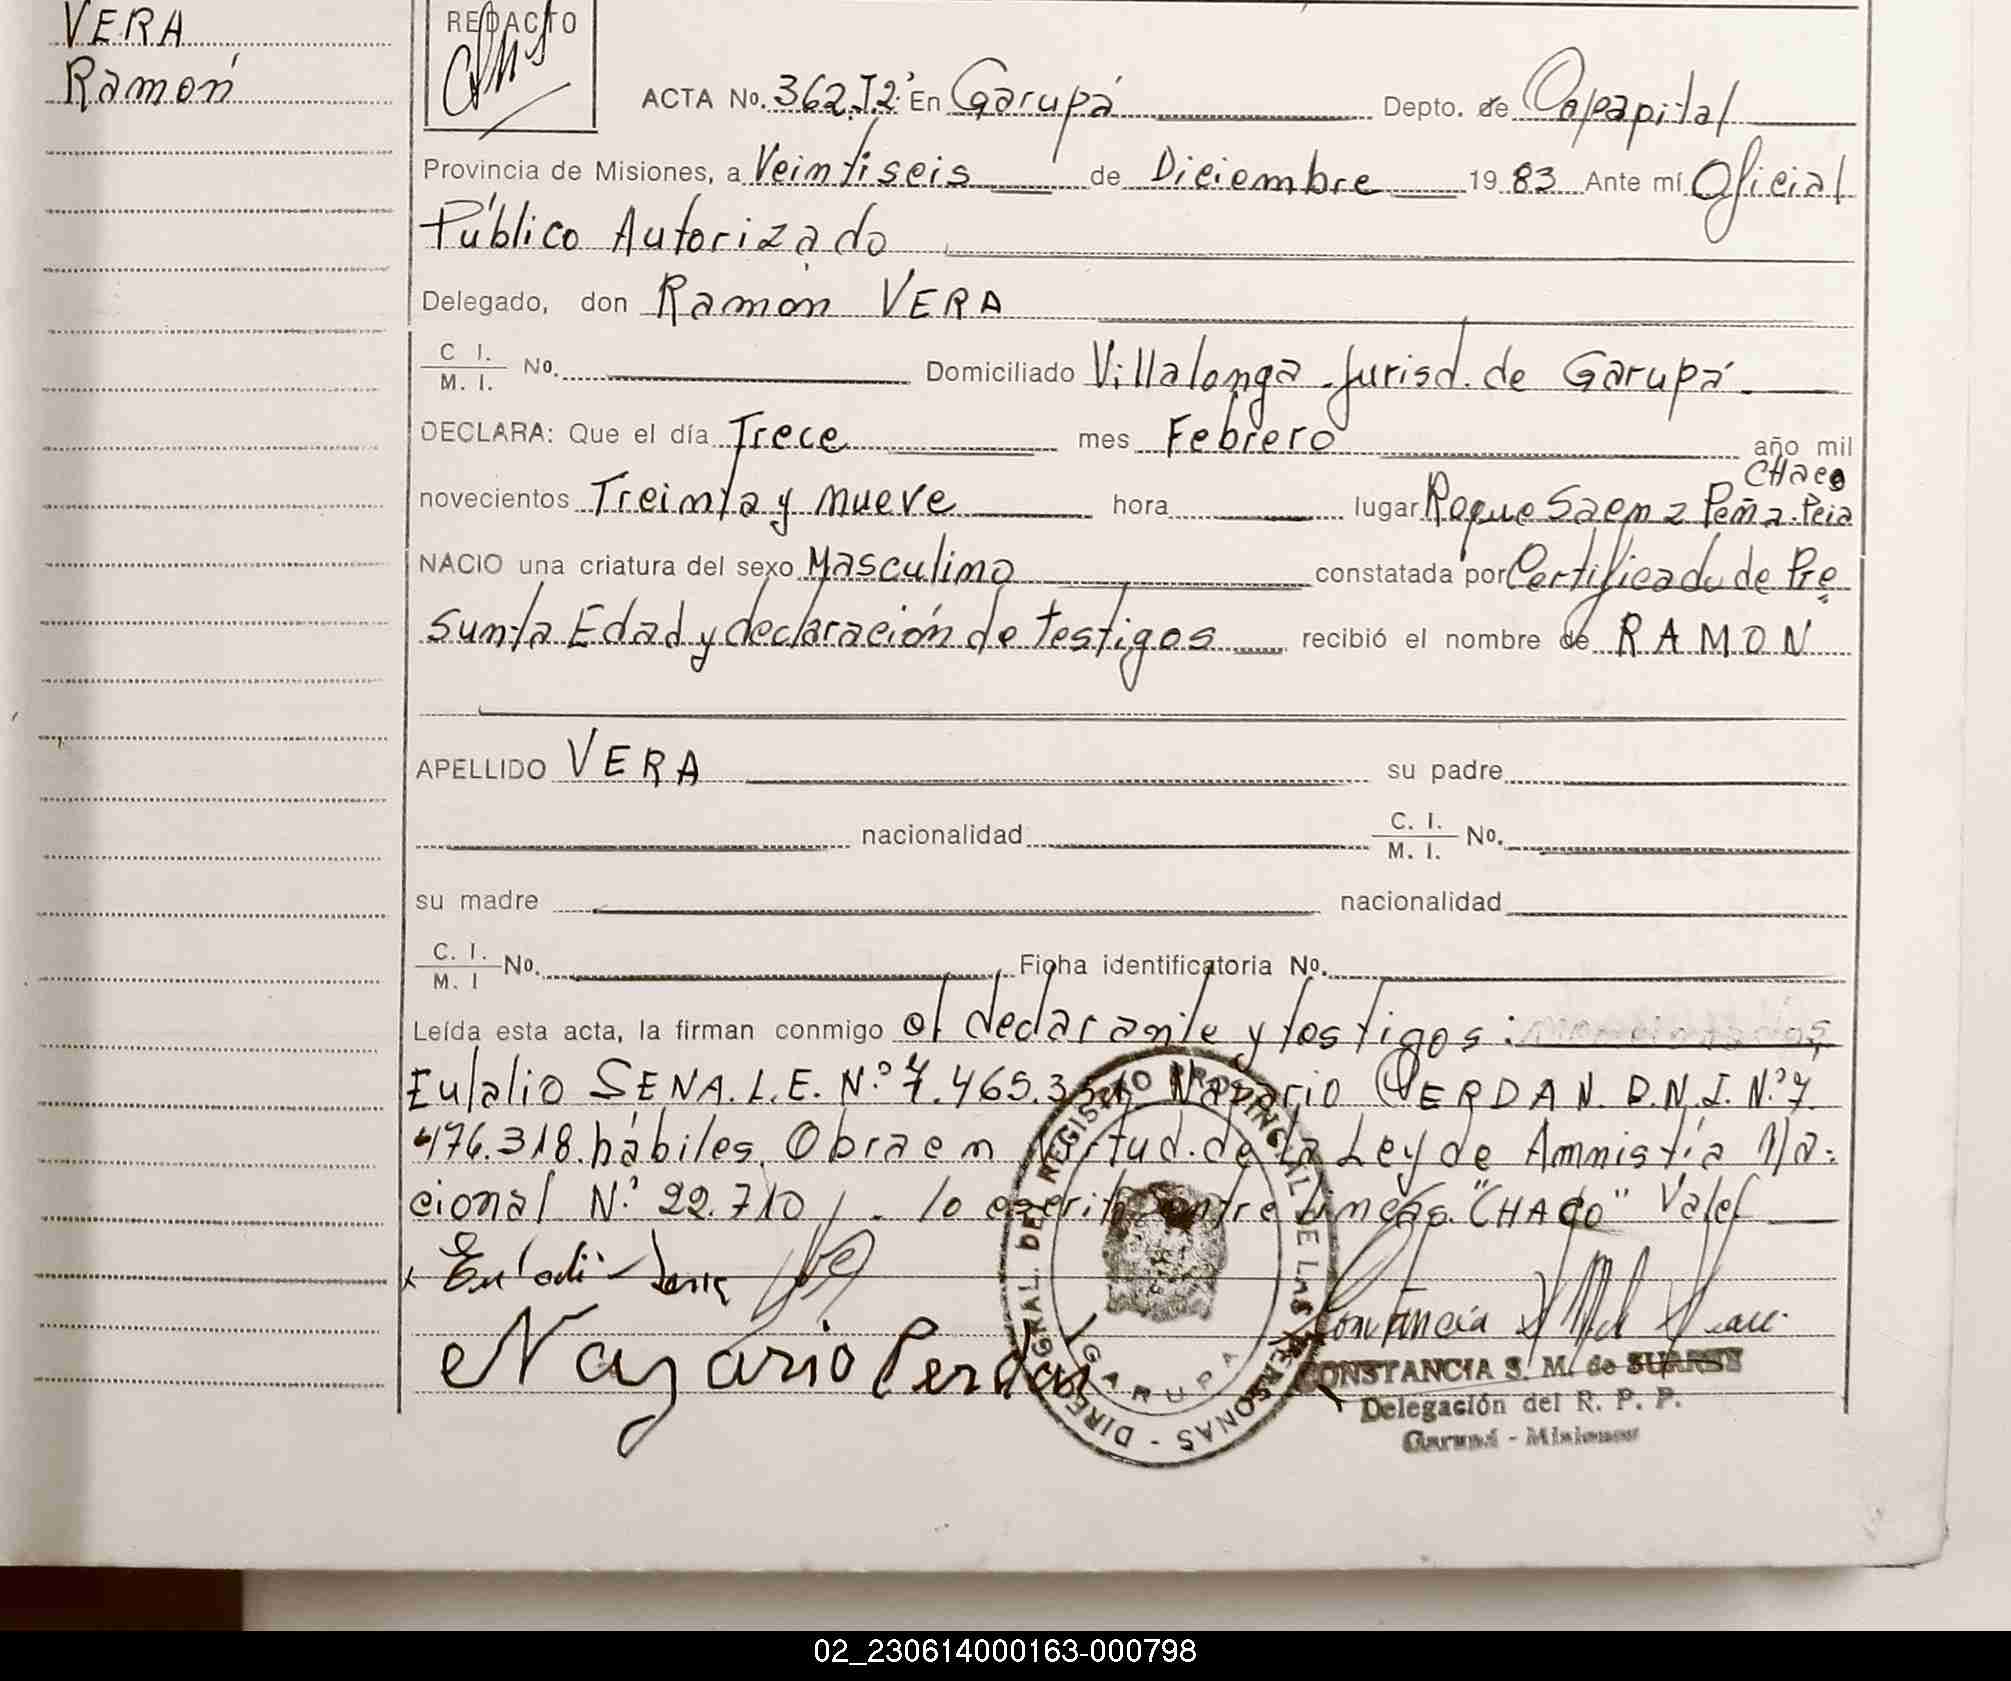 VERA
Ramón
REDACTO
ACTA No. 362.T2º En Garupá Depto. de Capital
Provincia de Misiones, a Veintiseis de Diciembre 19 83 Ante mí Oficial
Público Autorizado
Delegado, don Ramón VERA
C I. / M. I. No. Domiciliado Villalonga - Jurisd. de Garupá.
DECLARA: Que el día Trece mes Febrero año mil
CHACO
novecientos Treinta y nueve hora lugar Roque Saenz Peña. Pcia
NACIO una criatura del sexo Masculino constatada por Certificado de Pre
sunta Edad y declaración de testigos recibió el nombre de RAMON
APELLIDO VERA su padre
nacionalidad C. I. / M. I. No.
su madre nacionalidad
C. I. / M. I No. Ficha identificatoria No.
Leída esta acta, la firman conmigo el declarante y testigos:
Eulalio SENA. L.E. N.º 7.465.3 Nazario CERDAN. D.N.I. N.º 7.
476.318. hábiles. Obra en virtud de la Ley de Amnistía Na-
cional N.º 22.710 . lo escrito entre lineas. "CHACO" Vale
Nazario Cerdan
DIREC. GRAL. DEL REGISTRO PROVINCIAL DE LAS PERSONAS -
GARUPA
CONSTANCIA S. M. de SUAREZ
Delegación del R. P. P.
Garupá - Misiones
02_230614000163-000798